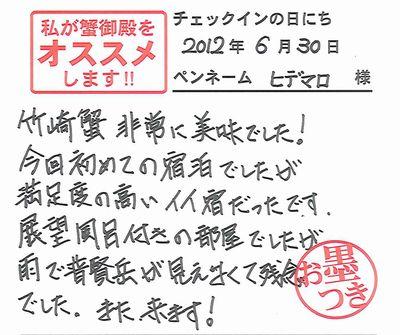 私が蟹御殿を
オススメ
します!!
チェックインの日にち
2012年 6月30日
ペンネーム ヒデマロ 様
竹崎蟹 非常に美味でした!
今回初めての宿泊でしたが
満足度の高いイイ宿だったです.
展望風呂付きの部屋でしたが
雨で普賢岳が見えなくて残念
でした. また.来ます!
お墨つき